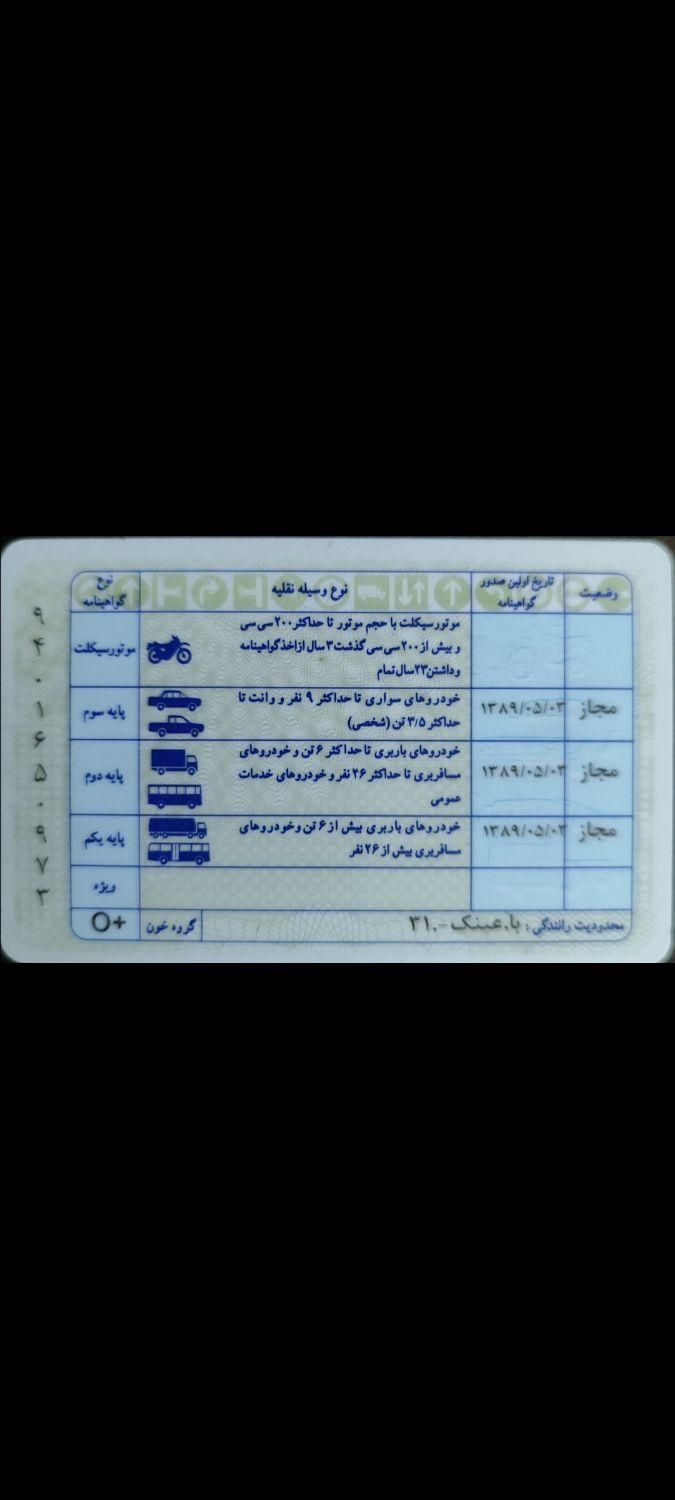 وضعیت تاریخ اولین صدور گواهینامه نوع وسیله نقلیه نوع گواهینامه
موتورسیکلت با حجم موتور تا حداکثر ۲۰۰ سی سی
و بیش از ۲۰۰ سی سی گذشت ۳ سال از اخذ گواهینامه
و داشتن ۲۳ سال تمام
موتورسیکلت
مجاز ۱۳۸۹/۰۵/۰۳ خودروهای سواری تا حداکثر ۹ نفر و وانت تا
حداکثر ۳/۵ تن (شخصی)
پایه سوم
مجاز ۱۳۸۹/۰۵/۰۳ خودروهای باربری تا حداکثر ۶ تن و خودروهای
مسافربری تا حداکثر ۲۶ نفر و خودروهای خدمات
عمومی
پایه دوم
مجاز ۱۳۸۹/۰۵/۰۳ خودروهای باربری بیش از ۶ تن و خودروهای
مسافربری بیش از ۲۶ نفر
پایه یکم
ویژه
محدودیت رانندگی : با.عینک-۳۱۰ گروه خون O+
۹
۴
۰
۱
۶
۵
۰
۹
۷
۳